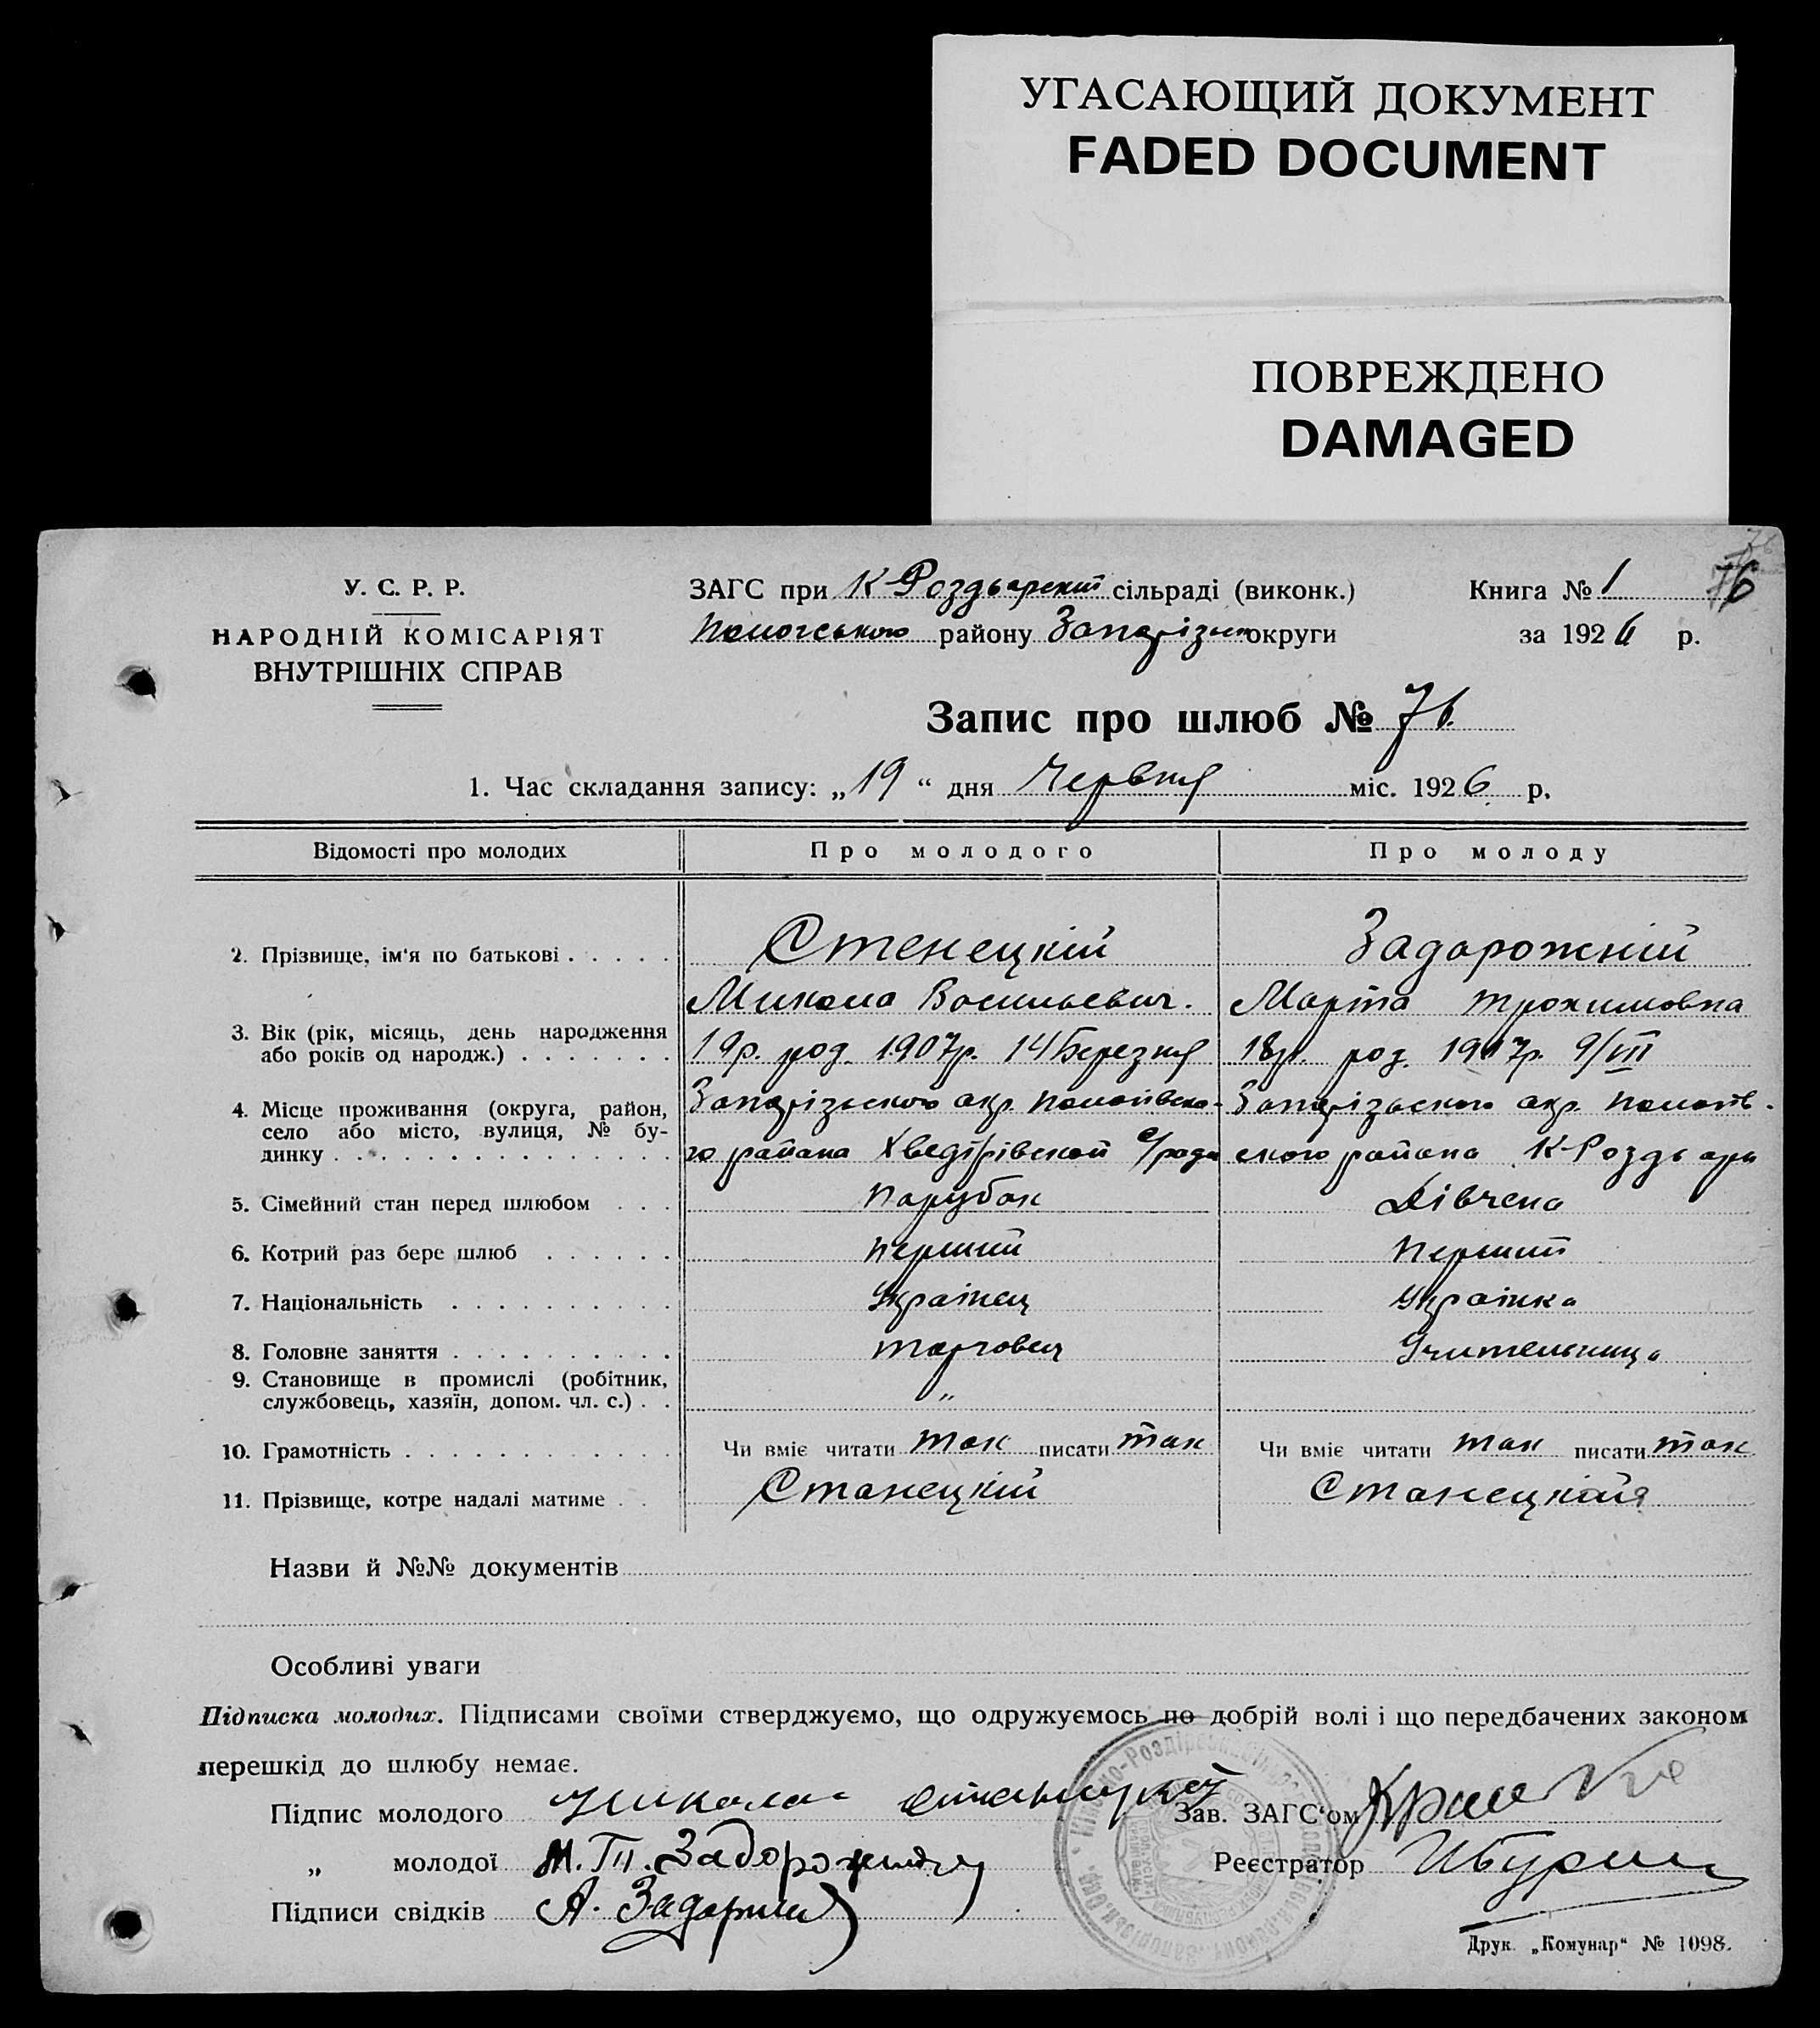 УГАСАЮЩИЙ ДОКУМЕНТ
FADED DOCUMENT
ПОВРЕЖДЕНО
DAMAGED
У. С. Р. Р.
НАРОДНІЙ КОМІСАРІЯТ
ВНУТРІШНІХ СПРАВ
ЗАГС при К-Роздьорскій сільраді (виконк.)
Пологського району Запорізьк округи
Книга № 1 76
за 1926 р.
Запис про шлюб № 76.
1. Час складання запису: „19“ дня Червня міс. 1926 р.
Відомості про молодих Про молодого Про молоду
2. Прізвище, ім'я по батькові . . . . . Стенецкій Задорожній
Микола Васильевич. Марта Трохимовна
3. Вік (рік, місяць, день народження
або років од народж.) . . . . . . . 19р. род. 1907р. 14 Березня 18р. род. 1907р. 9/VII
4. Місце проживання (округа, район,
село або місто, вулиця, № бу-
динку . . . . . . . . . . . . . . .
Запорізького окр. Пологівско-
го района Хведорівской с/ради
Запорізького окр. Пологів-
ского района К-Роздьори
5. Сімейний стан перед шлюбом . . . Парубок Дівчена
6. Котрий раз бере шлюб . . . . . . Перший Перший
7. Національність . . . . . . . . . . Українец Українка
8. Головне заняття . . . . . . . . . . Торговец Учительница
9. Становище в промислі (робітник,
службовець, хазяїн, допом. чл. с.) . . „
10. Грамотність . . . . . . . . . . . . Чи вміє читати так писати так Чи вміє читати так писати так
11. Прізвище, котре надалі матиме . . Станецкій Станецкая
Назви й №№ документів
Особливі уваги
Підписка молодих. Підписами своїми стверджуємо, що одружуємось по добрій волі і що передбачених законом
перешкід до шлюбу немає.
Підпис молодого Николай Станецкий Зав. ЗАГС'ом
„ молодої М. Т. Задорожняя Реєстратор
Підписи свідків А. Задорожн
Друк. „Комунар“ № 1098.